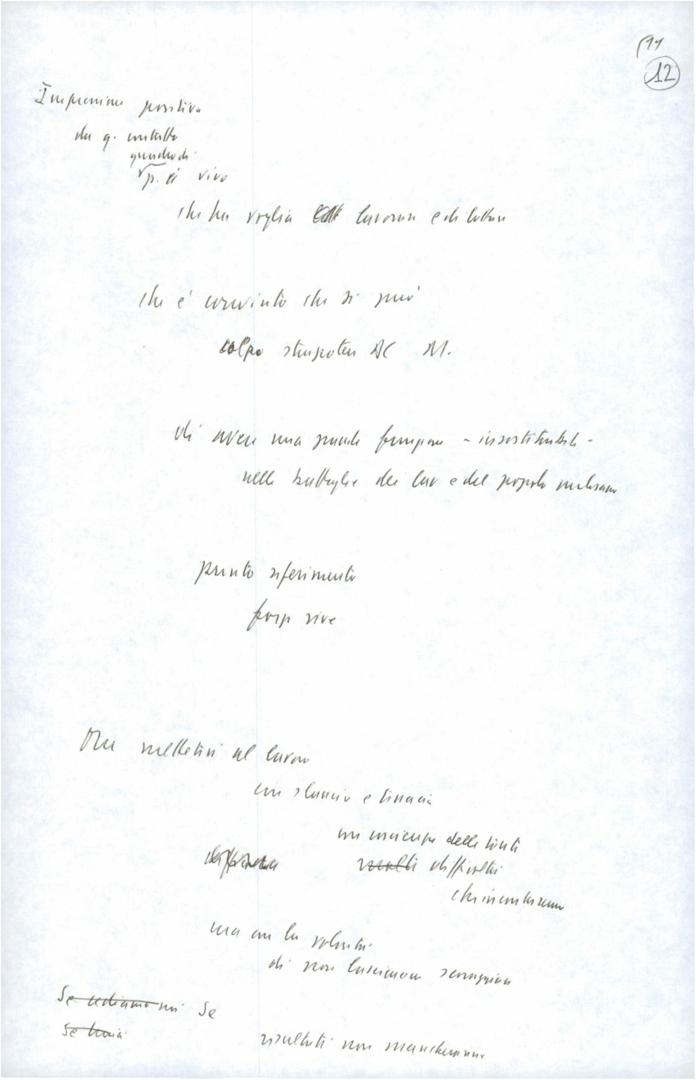 12
Impressione positiva
da q. contatto
quadro di
p. è vivo
che ha voglia lavorare e di lottare
che è convinto che si può
colpo DC M.
di avere una grande funzione - insostituibile -
nelle battaglie dei lav e del popolo
punto riferimento
forze vive
Ora mettersi al lavoro
con slancio e tenacia
delle tante
molti difficoltà
che incontreremo
ma con la volontà
di non lasciarsi scoraggiare
Se Se
risultati non mancheranno